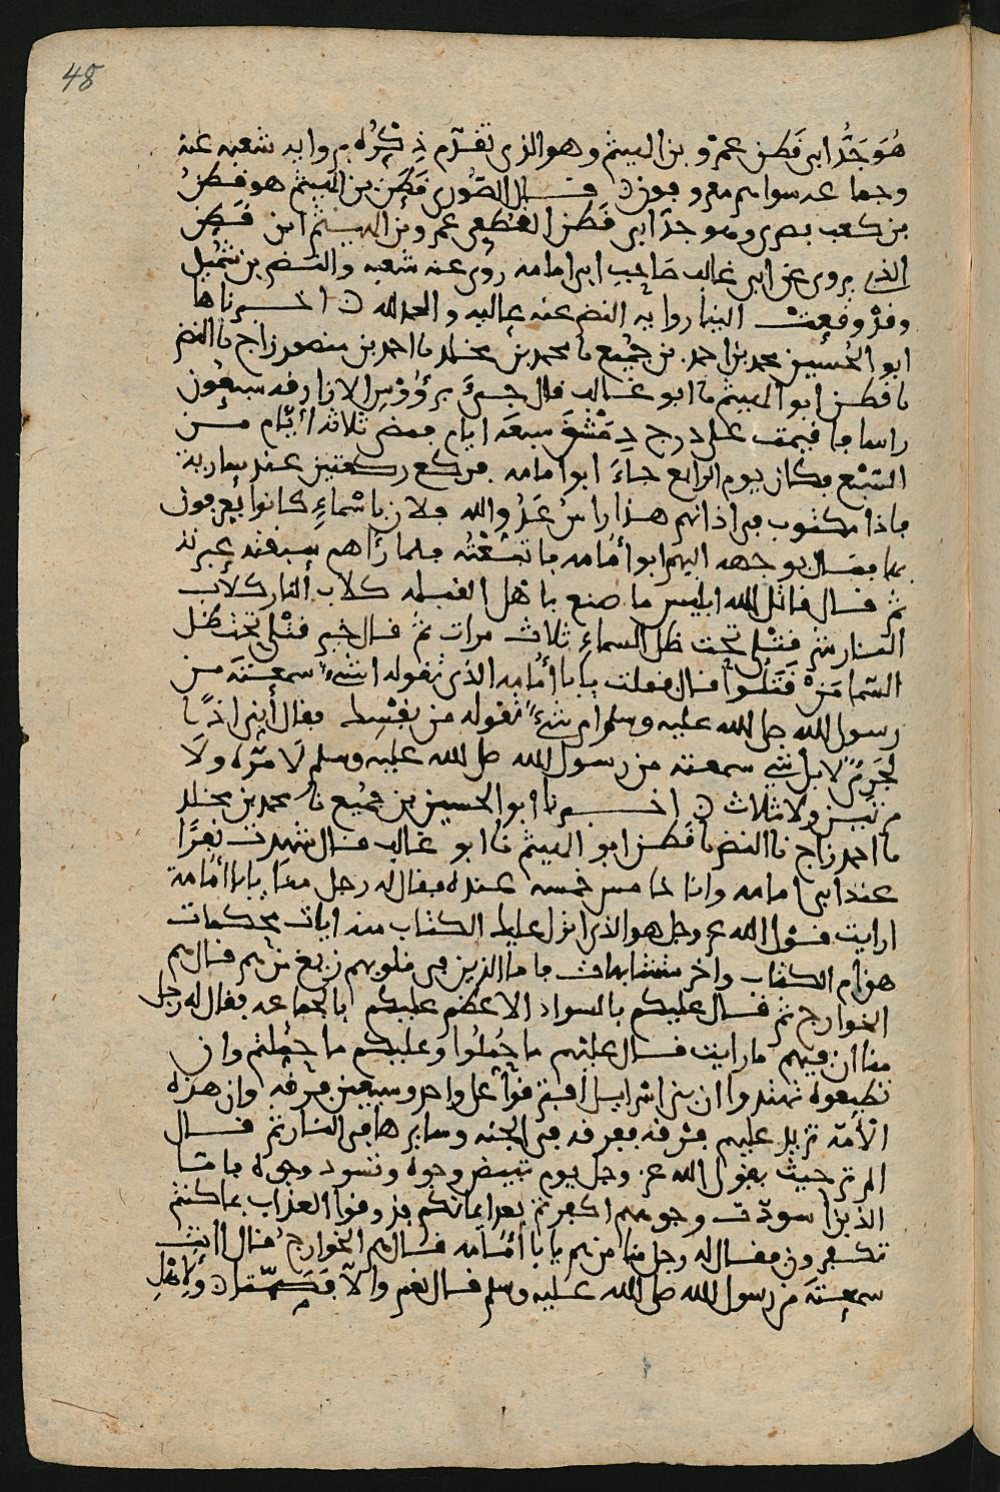 48
هُوَ جَدُّ ابي قَطَن عَمْرِو بن الهيثم وهو الذي تقدّم ذِكْرُه يروايه شعبه عنه
وجماعه سواهم معروفون ○ قال الصُّوري قَطَن بن الهيثم هو قطن
بن كعب بصري وهو جدّ ابي قَطَن القُطَعي عمرو بن الهيثم ابن قَطَن
الذي يروي عن ابي غالب صَاحِب ابي امامه روى عنه شعبه والنضر بن شُمَيْل
وقدْ وقعَتْ الينا روايه النضر عنه عاليه والحمد لله ○ اخبرناها
ابو الحُسين محمد بن احمد بن جُمَيع نا محمد بن مخلد نا احمد بن منصور زاج نا النضر
نا قطن ابو الهيثم نا ابو غالب قال جِيءَ برُؤوْسِ الازارقه سبعُون
راسا فاقيمت على درج دِمَشْقَ سبعَه ايام فمضى ثلاثه ايّام من
السَّبْع فكان يوم الرابع جاءَ ابو امامه فركع ركعتين عند ساريه
فاذا مكتوب في اذانهم هذا راس عَدُوِّ الله فلان باسْماءٍ كانوا يُعرفون
بها فقال بوجهه اليهم ابو أمَامه فاتبَعْتُه فلما رآهم سبقته عبرته
ثم قال قاتل الله ابليس ما صنع باهل القبله كلاب النار كلاب
النار شر قَتْلى تحت ظل السماءِ ثلاث مرات ثم قال خير قتْلى تحت ظل
السّما مَنْ قَتَلُوا قال فقلت يابا أمَامه الذي تقوله اشَيْءٌ سمعتَه من
رسول الله صلى الله عليه وسلم ام شَيْءٌ تقوله من نفسِك فقال أني اذًا
لجَرِيْءٌ لا بل شَيْءٌ سمعته من رسول الله صلى الله عليه وسلم لَا مرّه ولَا
مرتين ولا ثلاث ○ اخبرنا ابو الحسين بن جُميع نا محمد بن مخلد
نا احمد زاج نا النضر نا قطن ابو الهيثم نا ابو غالب قال شهدت نفرًا
عند ابي امامه وانا خامس خمسه عنده فقال له رجل منا يابا أمَامة
ارايت قول الله عز وجل هو الذي انزل عليك الكتاب منه ايات محكمات
هن ام الكتاب واخر متشابهات فاما الذين في قلوبهم زيغ من هم قال هم
الخوارج ثم قال عليكم بالسواد الاعظم عليكم بالجماعه فقال له رجل
منا ان فيهم ما رايت قال عليهم ما حُمّلُوا وعليكم ما حمّلتم وان
تطيعوه تهتدوا ان بني اسْرائيل افترقوا على واحد وسبعين فرقه وان هذه
الأمّه تزيد عليهم فرقه ففرقه في الجنه وسايرها في النار ثم قال
الم تر حيث يقول الله عز وجل يوم تبيض وجوه وتسود وجوه فاما
الذين اسودّت وجوههم اكفرتم بعد ايمانكم فذوقوا العذاب بما كنتم
تكفرون فقال له رجل منا من هم يابا أمَامه قال هم الخوارج فقال أأنت
سمعتَه من رسول الله صلى الله عليه وسلم قال نعم والّا فَصَمَّتا ○